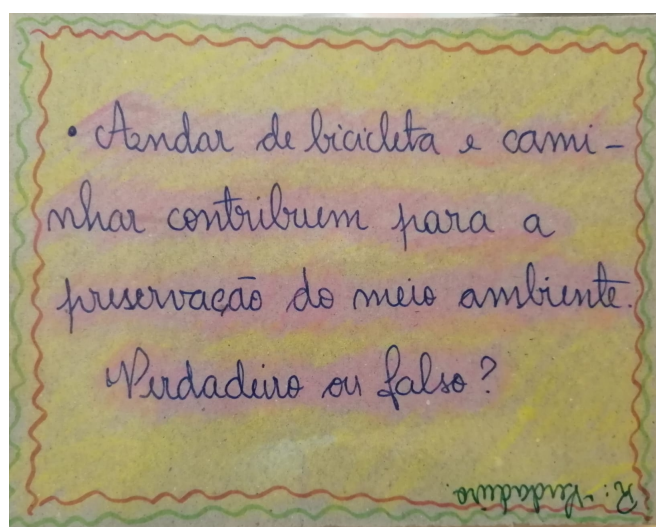 • Andar de bicicleta e cami-
nhar contribuem para a
preservação do meio ambiente.
Verdadeiro ou falso?
R: Verdadeiro.